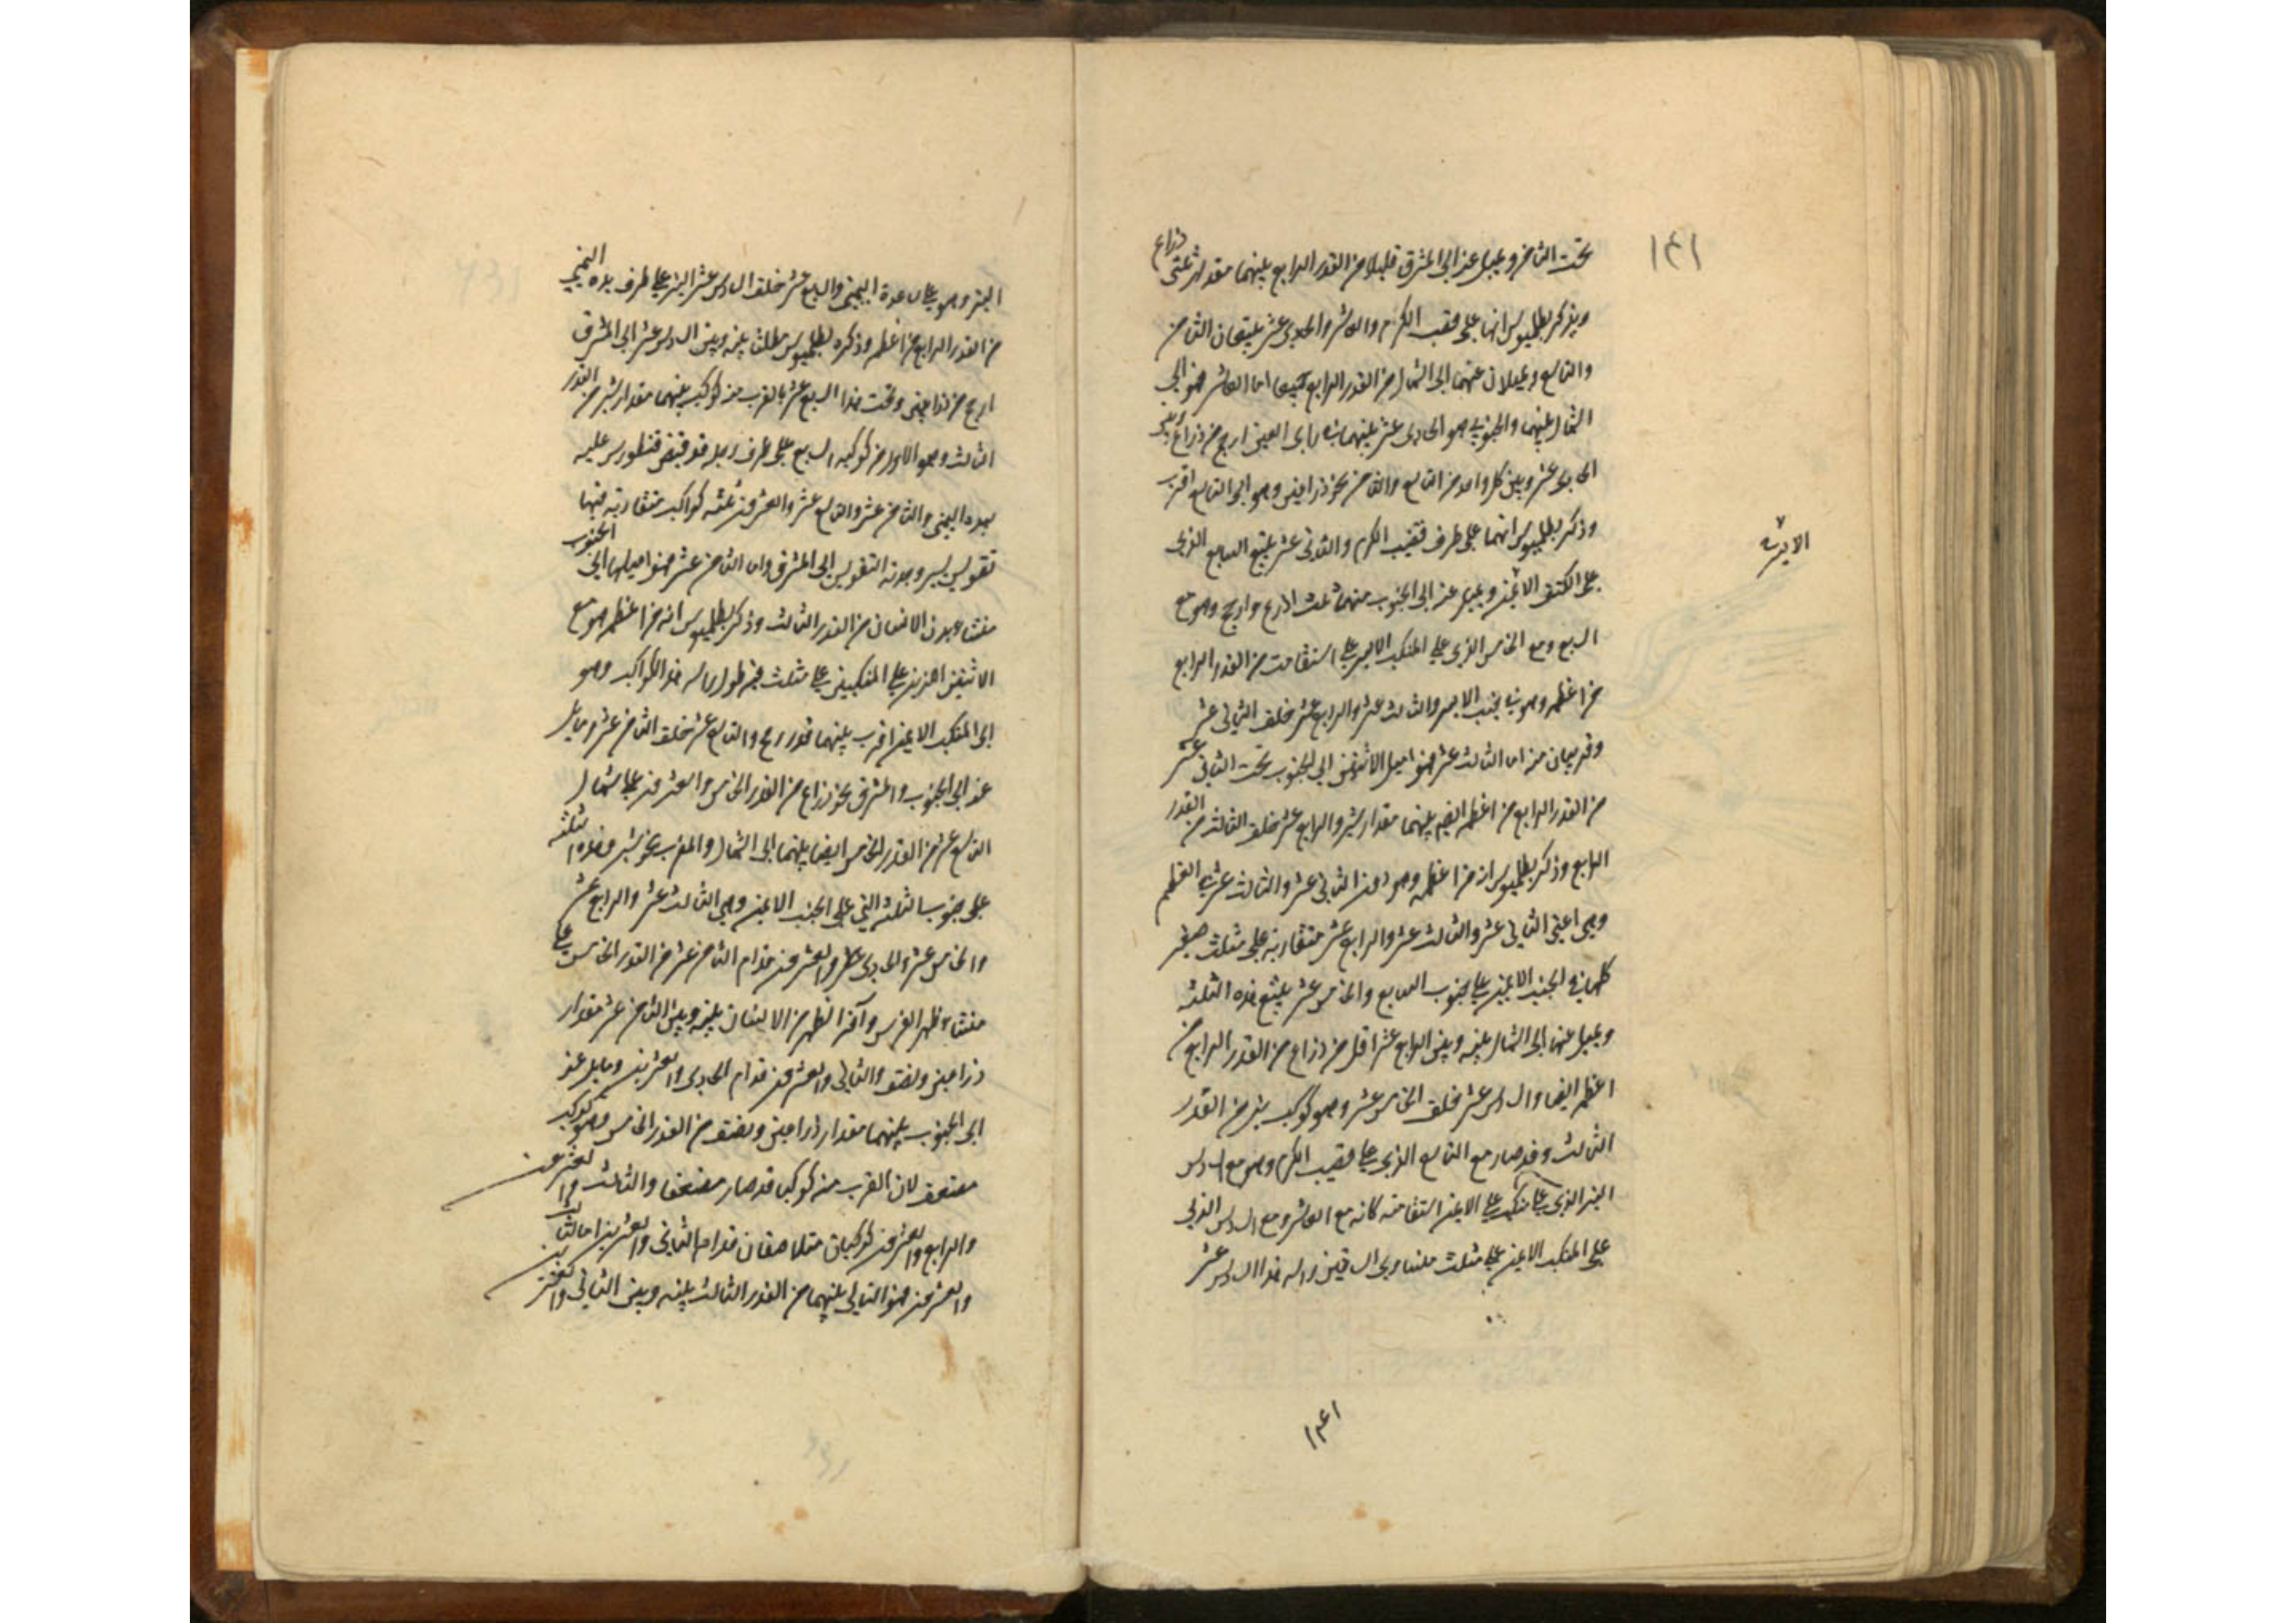 ١٤١
تحت الثامن ويميل عنه الى المشرق قليلا من القدر الرابع بينهما مقدار ثلثي ذراع
ويذكر بطلميوس انها على قضيب الكرم والعاشر والحادى عشر يتبعان الثامن
والتاسع ويميلان عنهما الى الشمال من القدر الرابع اما العاشر فهو الى
الشمال بينهما والجنوبي هو الحادى عشر بينهما في راى العين ارجح من ذراع وبين
الحادى عشر وبين كل واحد من التاسع والثامن نحو ذراعين وهو الى التاسع اقرب
وذكر بطلميوس انهما على طرف قضيب الكرم والثانى عشر يتبع السابع الذى
الايسر
على الكتف الايمن ويميل عنه الى الجنوب منهما ثلث اذرع وارجح وهو مع
السابع ومع الخامس الذى على المنكب الايسر على استقامة من القدر الرابع
من اعظمه وهو في جنب الايسر والثالث عشر والرابع عشر خلف الثانى عشر
وقريبان منه اما الثالث عشر فهو اميل الاثنين الى الجنوب تحت الثانى عشر
من القدر الرابع من اعظمه ايضا بينهما مقدار شبر والرابع عشر خلف الثالث من القدر
الرابع وذكر بطلميوس انه من اعظمه وهو دون الثانى عشر والثالث عشر في العظم
وهى اعنى الثانى عشر والثالث عشر والرابع عشر متقاربة على مثلث صغير
كلها في الجنب الايمن على جنوب السابع والخامس عشر يتبع هذه الثلثة
ويميل عنها الى الشمال بينه وبين الرابع عشر اقل من ذراع من القدر الرابع من
اعظمه ايضا والسادس عشر خلف الخامس عشر وهو كوكب نير من القدر
الثالث وقد صار مع التاسع الذى على قضيب الكرم وهو مع السادس
النير الذى على منكب على الايمن استقامة كانه مع العاشر ومع السادس الذى
على المنكب الايمن على مثلث متساوى الساقين راسه هذا السادس عشر
١٤١
النير وهو على ساعده اليمنى والسابع عشر خلف السادس عشر النير على طرف يده اليمنى
من القدر الرابع من اعظمه وذكره بطلميوس مطلقا بينه وبين السادس عشر الى المشرق
ارجح من ذراعين وتحت هذا السابع عشر بالقرب منه كوكب بينهما مقدار شبر من القدر
الثالث وهو الاول من كوكبة السبع على طرف رجله قد قبض قنطورس عليه
بيده اليمنى والثامن عشر والتاسع عشر والعشرون ثلثة كواكب متقاربة فيها
تقويس يسير وحدبة التقويس الى المشرق واما الثامن عشر فهو اميلها الى الجنوب
منشا بدن الانسان من القدر الثالث وذكر بطلميوس انه من اعظمه هو مع
الاثنين الذين على المنكبين على مثلث فيه طول راسه هذا الكوكب وهو
الى المنكب الايمن اقرب بينهما قدر رمح والتاسع عشر خلف الثامن عشر ومايل
عنه الى الجنوب والمشرق نحو ذراع من القدر الخامس والعشرون على شمال
التاسع عشر من القدر الخامس ايضا بينهما الى الشمال والمغرب نحو شبر وهذه الثلثة
على جنوب الثلثة التي على الجنب الايمن وهى الثالث عشر والرابع عشر
والخامس عشر والحادى والعشرون قدام الثامن عشر من القدر الخامس على
منشا ظهر الفرس وآخر الظهر من الانسان بينه وبين الثامن عشر مقدار
ذراعين ونصف والثانى والعشرون قدام الحادى والعشرين ومايل عنه
الى الجنوب بينهما مقدار ذراعين ونصف من القدر الخامس وهو كوكب
مضعف لان القرب منه كوكبا قد صار مضعفا والثالث والعشرون
والرابع والعشرون كوكبان متلاصقان قدام الثانى والعشرين اما الثالث
والعشرون فهو التالى بينهما من القدر الثالث بينه وبين الثانى والعشرين